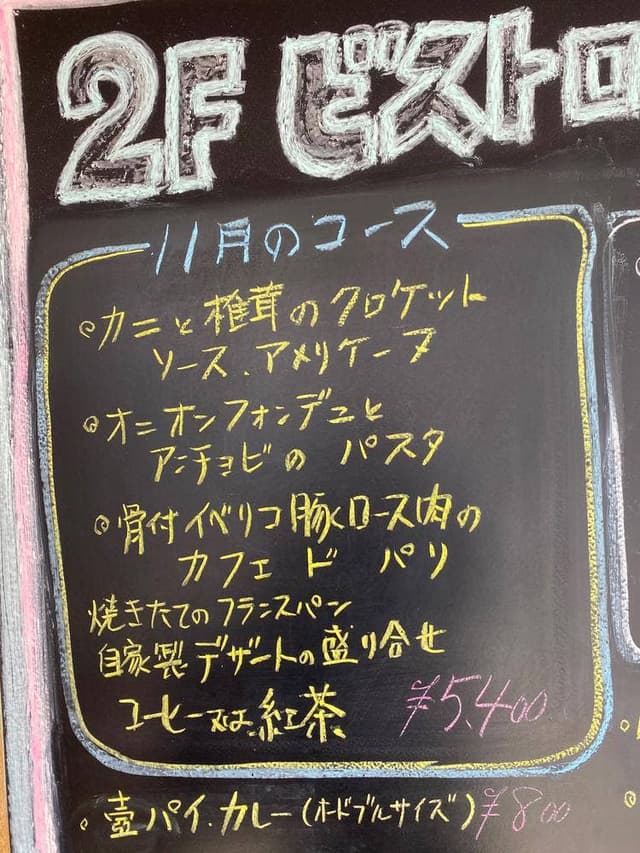 2F ビストロ
11月のコース
カニと椎茸のクロケット
ソース、アメリケーヌ
オニオンフォンデュと
アンチョビの パスタ
骨付イベリコ豚ロース肉の
カフェ ド パリ
焼きたてのフランスパン
自家製デザートの盛り合せ
コーヒー又は紅茶 ¥5.400
壺パイ.カレー(オードブルサイズ)¥800